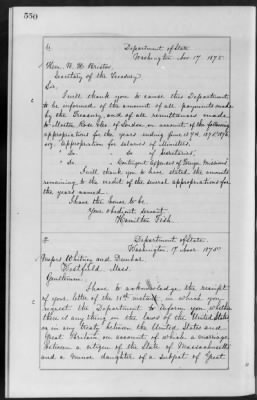 550
Department of State
Washington Nov 17 1875
Hon. B. H. Bristow
Secretary of the Treasury
Sir,
I will thank you to cause this Department
to be informed of the amount of all payments made
by the Treasury, and of all remittances made
to Morton Rose & Co of London, on account of the following
appropriations for the years ending June 30th
Appropriation for salaries of Ministers.
" Do Do of Secretaries.
" Do Contingent Expenses of Foreign Missions.
I will thank you to have stated the amounts
remaining to the credit of the several appropriations for
the years named.
I have the honor to be
Your obedient servant
Hamilton Fish.
Department of State.
Washington. 17 Nov 1875
Messrs Whitney and Dunbar.
Westfield Mass.
Gentlemen:
I have to acknowledge the receipt
of your letter of the 11th instant, in which you
request the Department to inform you whether
there is any thing in the laws of the United States
or in any treaty between the United States and
Great Britain on account of which a marriage
between a citizen of the State of Massachusetts
and a minor daughter of a subject of Great